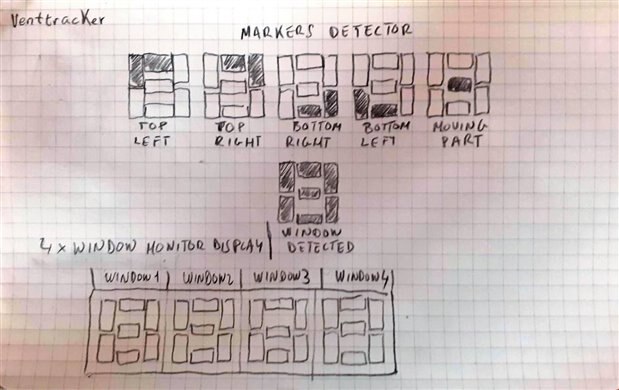 Venttracker
MARKERS DETECTOR
TOP LEFT
TOP RIGHT
BOTTOM RIGHT
BOTTOM LEFT
MOVING PART
WINDOW DETECTED
4 x WINDOW MONITOR DISPLAY
WINDOW1 WINDOW2 WINDOW3 WINDOW4